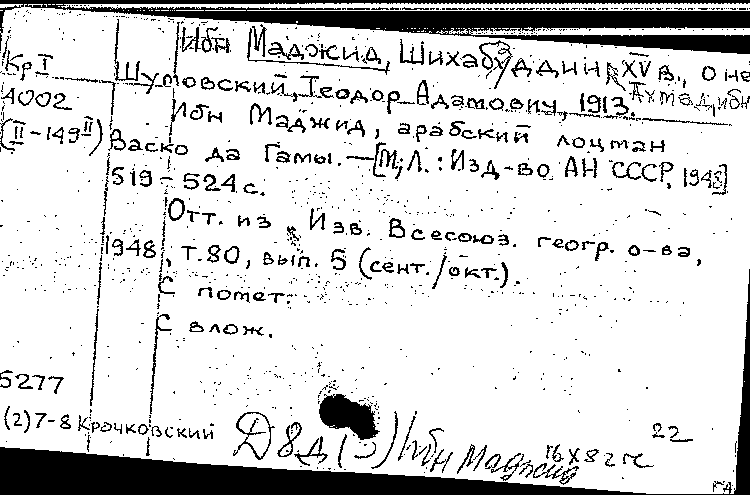 Ибн Маджид, Шихабуддин, XV в., о не
Ахмад, ибн
КрI Шумовский, Теодор Адамович, 1913.
4002 Ибн Маджид, арабский лоцман
(II-149II) Васко да Гамы.—[М; Л.: Изд-во АН СССР, 1948]
519-524 с.
Отт. из Изв. Всесоюз. геогр. о-ва,
1948, т.80, вып. 5 (сент./окт.).
С помет.
С влож.
5277
(2)7-8 Крачковский
Д8д(5) Ибн Маджид
22